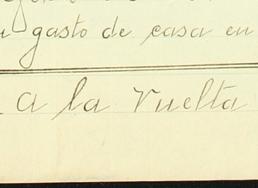 gasto de casa en
a la vuelta